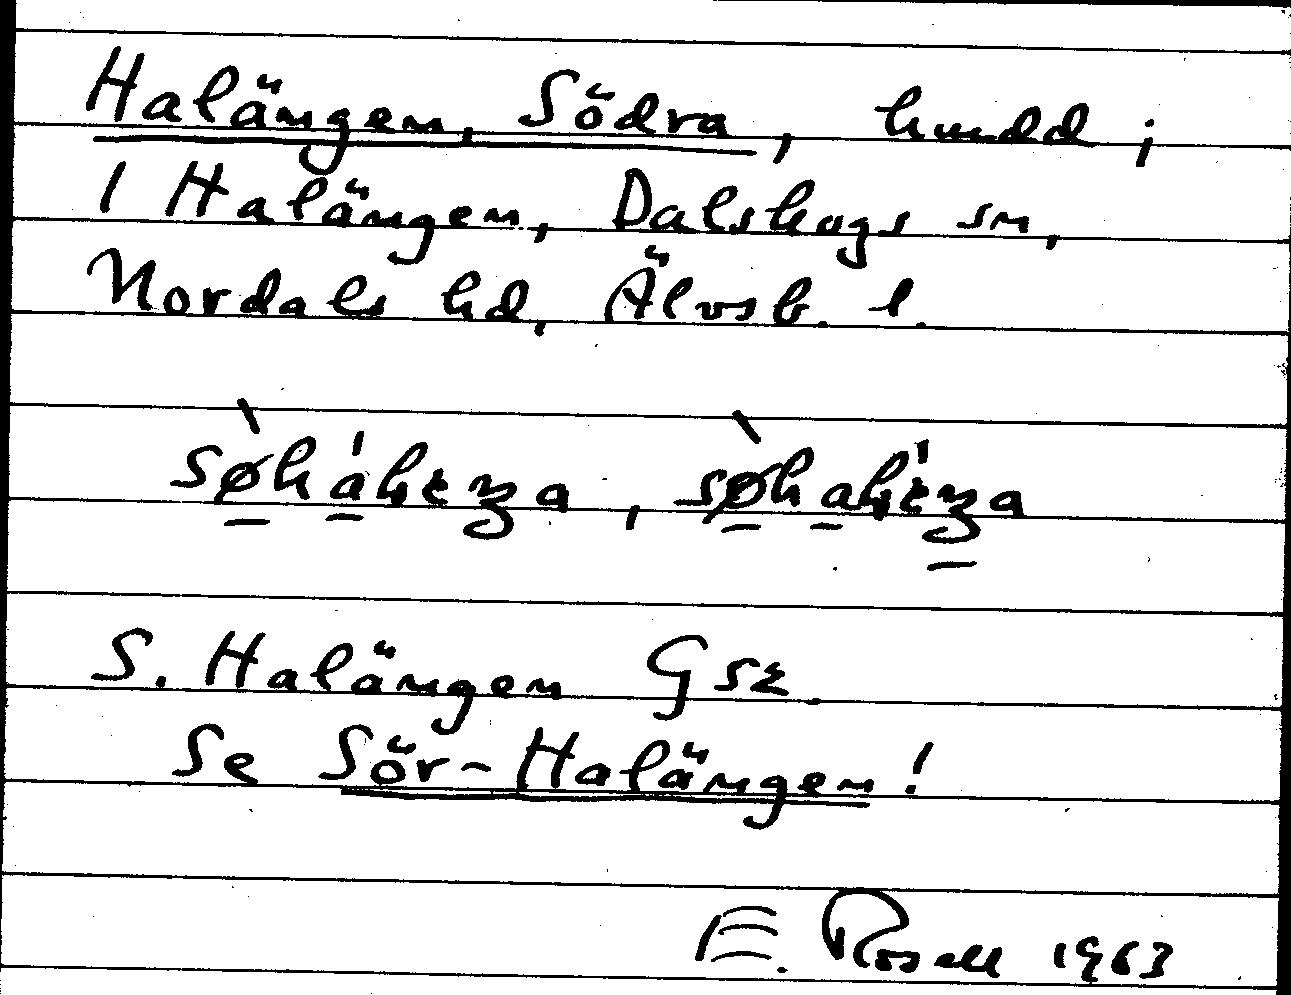 Halängen, Södra, hmdd i
1 Halängen, Dalskogs sn,
Nordals hd, Älvsb. l.
S. Halängen Gsk.
Se Sör-Halängen!
E. Rosell 1963